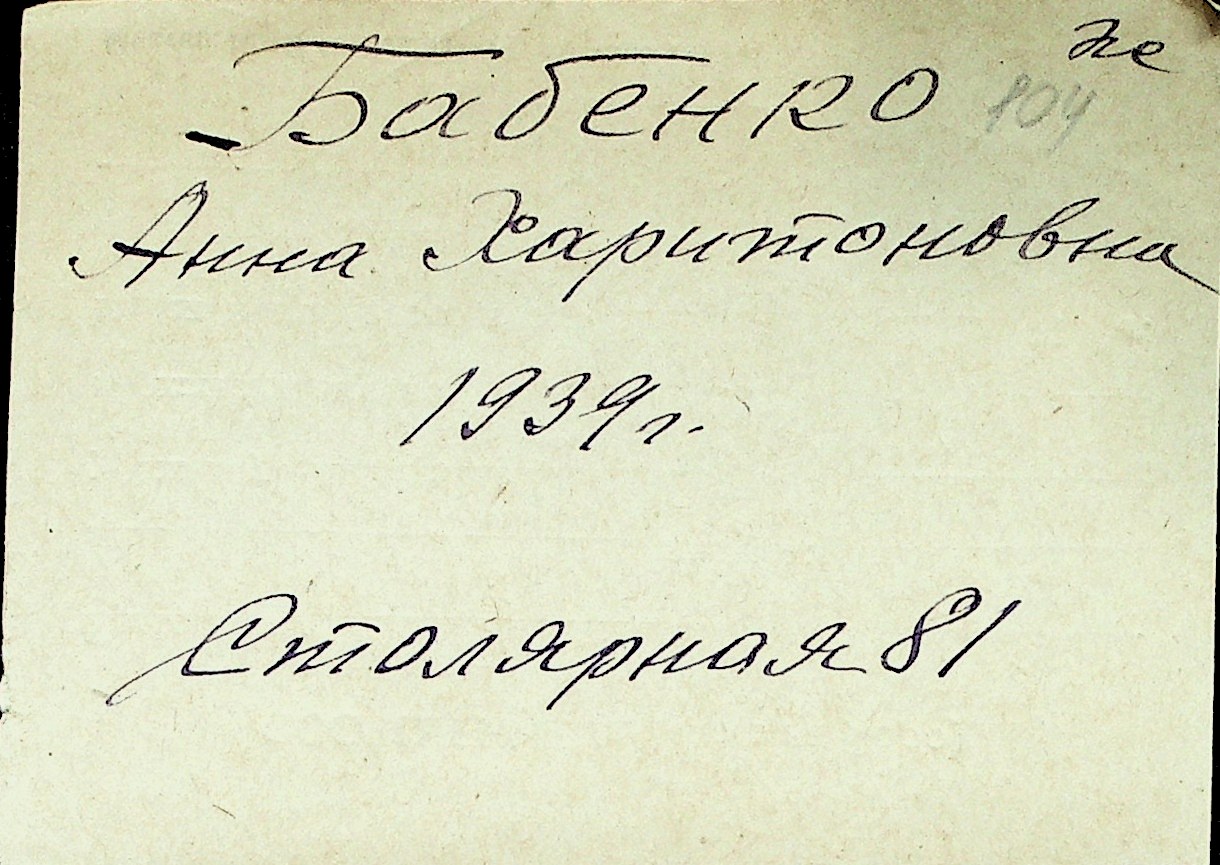 Бабенко
804
Анна Харитоновна
1939г.
Столярная 81